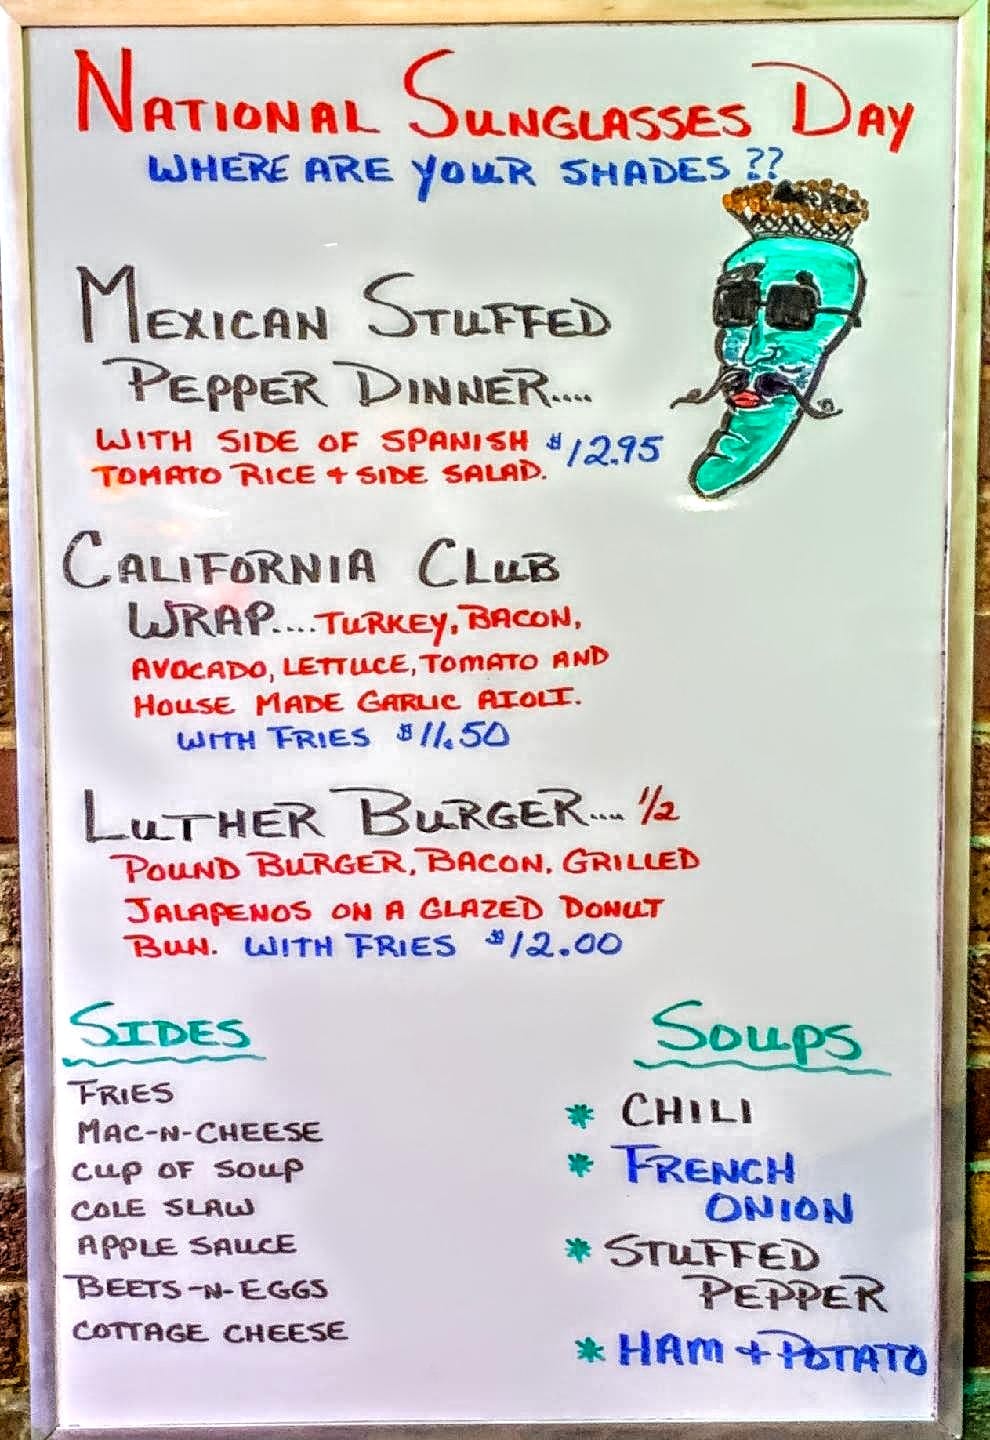 NATIONAL SUNGLASSES DAY
WHERE ARE YOUR SHADES ??
MEXICAN STUFFED
PEPPER DINNER....
WITH SIDE OF SPANISH $12.95
TOMATO RICE + SIDE SALAD.
CALIFORNIA CLUB
WRAP....TURKEY, BACON,
AVOCADO, LETTUCE, TOMATO AND
HOUSE MADE GARLIC AIOLI.
WITH FRIES $11.50
LUTHER BURGER.... 1/2
POUND BURGER, BACON, GRILLED
JALAPENOS ON A GLAZED DONUT
BUN. WITH FRIES $12.00
SIDES
FRIES
MAC-N-CHEESE
CUP OF SOUP
COLE SLAW
APPLE SAUCE
BEETS-N-EGGS
COTTAGE CHEESE
SOUPS
* CHILI
* FRENCH
ONION
* STUFFED
PEPPER
* HAM + POTATO